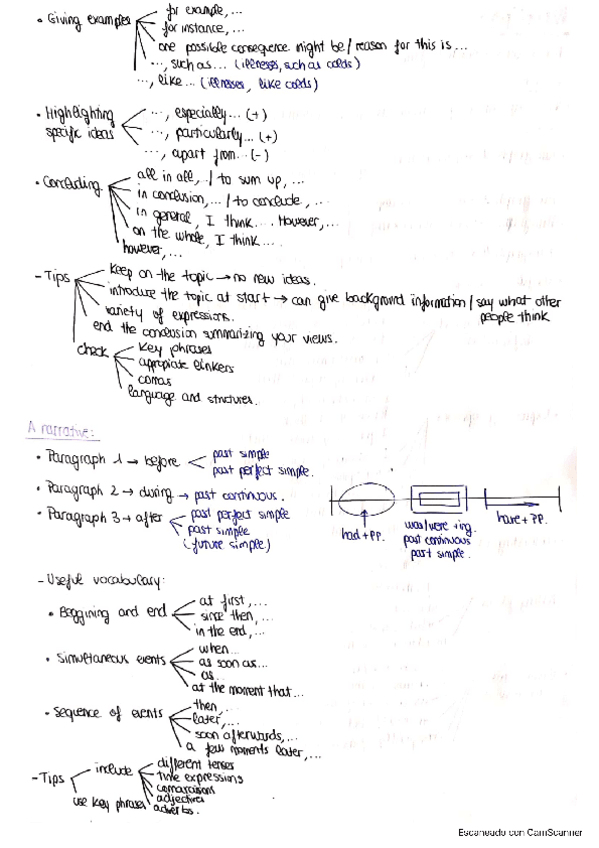 • Giving examples
for example, ...
for instance, ...
one possible consequence might be / reason for this is ...
..., such as... (illnesses, such as colds)
..., like... (illnesses, like colds)
• Highlighting specific ideas
..., especially... (+)
..., particularly... (+)
..., apart from... (-)
• Concluding
all in all, ... / to sum up, ...
in conclusion, ... / to conclude, ...
in general, I think.... However, ...
on the whole, I think ....
however, ...
- Tips
keep on the topic → no new ideas.
introduce the topic at start → can give background information / say what other
people think
variety of expressions.
end the conclusion summarizing your views.
check
key phrases
appropiate linkers
comas
language and structures.
A narrative:
• Paragraph 1 → before
past simple
past perfect simple.
• Paragraph 2 → during → past continuous.
• Paragraph 3 → after
past perfect simple
past simple
(future simple)
had + PP.
was/were + ing.
past continuous
past simple.
have + PP.
- Useful vocabulary:
• Beggining and end
at first, ...
since then, ...
in the end, ...
• Simultaneous events
when...
as soon as...
as...
at the moment that...
• Sequence of events
then, ...
later, ...
soon afterwards, ...
a few moments later, ...
- Tips
include
different tenses
time expressions
comparaisons
adjectives
adverbs.
use key phrases
Escaneado con CamScanner